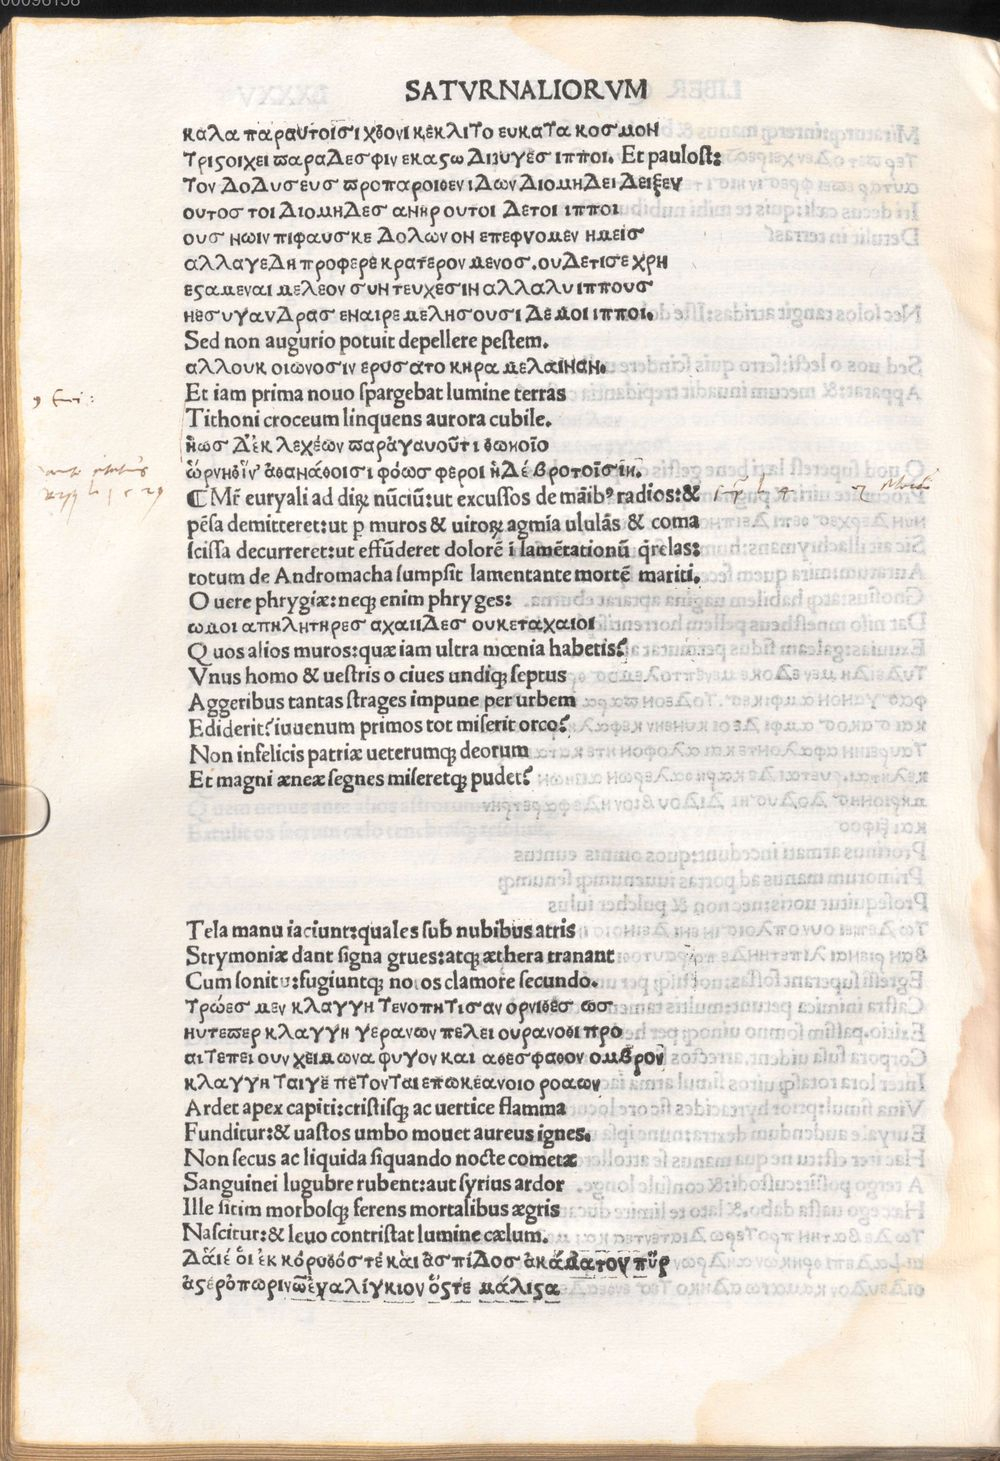 SATVRNALIORVM
καλα παραυτοισι χθονι κεκλιτο ευκατα κοσμον
τριςοιχει παραδεσφιν εκαςω διζυγες ιπποι. Et paulost:
τον δοδυσευς προπαροιθεν ιδων διομηδει δειξεν
ουτος τοι διομηδες ανηρ ουτοι δετοι ιπποι
ους νωιν πιφαυσκε δολων ον επεφνομεν ημεις
αλλαγεδη προφερε κρατερον μενος. ουδετισε χρη
εςαμεναι μελεον συν τευχεσιν αλλαλυ ιππους
ηεσυγανδρας εναιρε μελησουσι δεμοι ιπποι.
Sed non augurio potuit depellere pestem.
αλλουκ οιωνοσιν ερυσατο κηρα μελαιναν.
Et iam prima nouo spargebat lumine terras
Tithoni croceum linquens aurora cubile.
ἠως δ'εκ λεχέων παράγαυοῦτι θωνοῖο
ὥρνηθιν' ἀθανάθοισι φόωσ φεροι ἠδέ βροτοῖσιν.
¶ Mr̃ euryali ad dirꝝ nũciũ: ut excussos de mãibꝰ radios: &
pẽsa demitteret: ut ꝑ muros & uiroꝝ agmia ululãs & coma
scissa decurreret: ut effũderet dolorẽ ĩ lamẽtationũ q̃relas:
totum de Andromacha sumpsit lamentante mortẽ mariti.
O uere phrygiæ: neqꝫ enim phryges:
ωμοι απηλητηρες αχαιιδες ουκεταχαιοι
Quos alios muros: quæ iam ultra mœnia habetis?
Vnus homo & uestris o ciues undiqꝫ septus
Aggeribus tantas strages impune per urbem
Ediderit? iuuenum primos tot miserit orco?
Non infelicis patriæ ueterumqꝫ deorum
Et magni æneæ segnes miseretqꝫ pudet?
Tela manu iaciunt: quales sub nubibus atris
Strymoniæ dant signa grues: atqꝫ æthera tranant
Cum sonitu: fugiuntqꝫ notos clamore secundo.
τρωες μεν κλαγγη τενοπητισαν ορνιθες ως
ηυτεπερ κλαγγη γερανων πελει ουρανοθι προ
αιτεπει ουν χειμωνα φυγον και αθεσφαθον ομβρον
κλαγγη ταιγε πετονται επωκεανοιο ροαων
Ardet apex capiti: cristisqꝫ ac uertice flamma
Funditur: & uastos umbo mouet aureus ignes.
Non secus ac liquida siquando nocte cometæ
Sanguinei lugubre rubent: aut syrius ardor
Ille sitim morbosqꝫ ferens mortalibus ægris
Nascitur: & leuo contristat lumine cælum.
Δἁιέ ὁι ἐκ κόρυθός τέ κὰι ἀςπίδος ἀκάματον πῦρ
ἀςερὀπωρινῶ ἐναλίγκιον ὅςτε μάλιςα